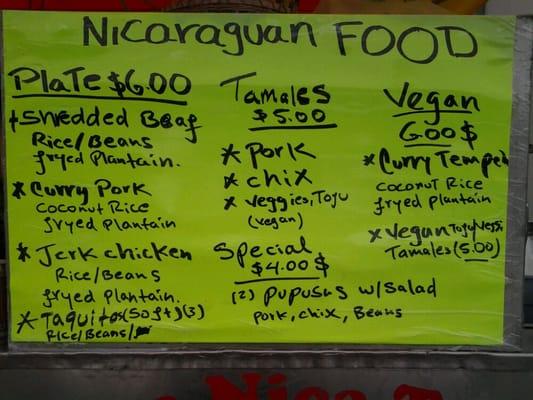 Nicaraguan FOOD
Plate $6.00
+Shredded Beaf
Rice/Beans
fryed Plantain.
* Curry Pork
Coconut Rice
fryed Plantain
* Jerk chicken
Rice/Beans
fryed plantain.
* Taquitos (Soft) (3)
Rice/Beans/
Tamales
$5.00
* Pork
* chix
* veggies, Tofu
(vegan)
Special
$4.00$
(2) pupusus w/salad
Pork, chix, Beans
Vegan
6.00$
* Curry Tempeh
coconut Rice
fryed Plantain
* Vegan Tofu/Veggi
Tamales (5.00)
Nica